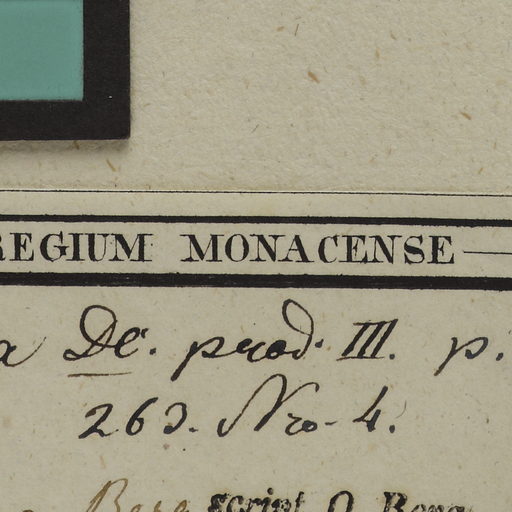 REGIUM MONACENSE
a DC. prod. III. p.
263. Nro. 4.
script. O. Berg